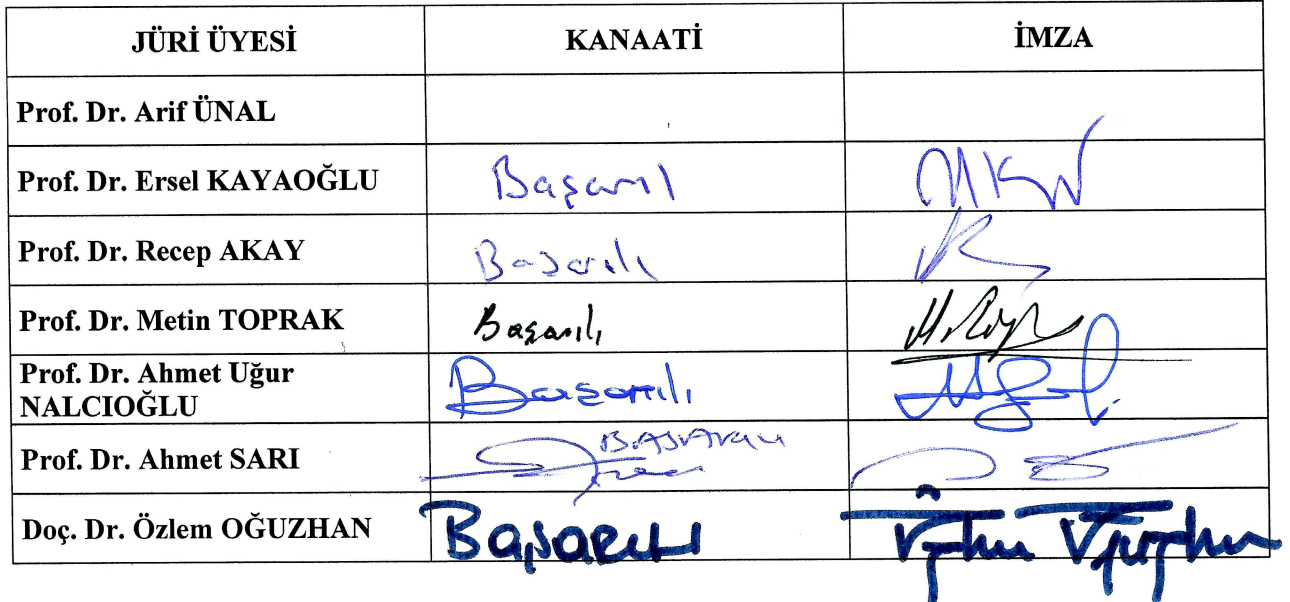 JÜRİ ÜYESİ KANAATİ İMZA
Prof. Dr. Arif ÜNAL
Prof. Dr. Ersel KAYAOĞLU Başarılı
Prof. Dr. Recep AKAY Başarılı
Prof. Dr. Metin TOPRAK Başarılı
Prof. Dr. Ahmet Uğur
NALCIOĞLU Başarılı
Prof. Dr. Ahmet SARI BAŞARILI
Doç. Dr. Özlem OĞUZHAN Başarılı